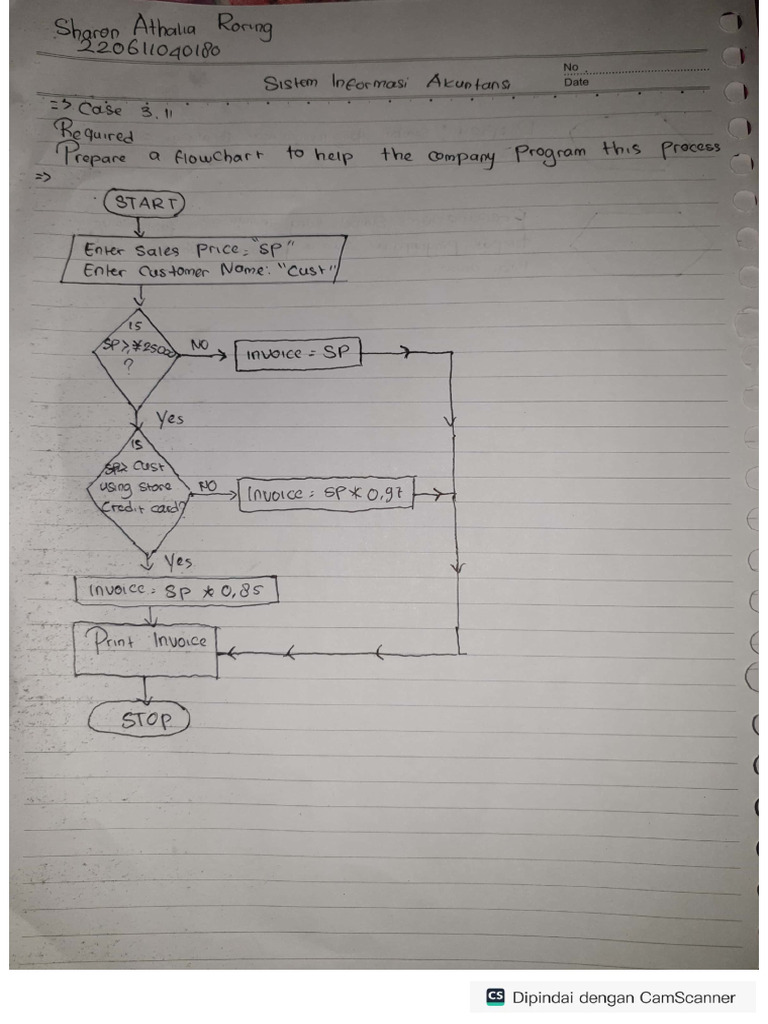 Sharon Athalia Roring
220611040180
No
Date
Sistem Informasi Akuntansi
=> Case 3.11
Required
Prepare a flowchart to help the company Program this process
=>
START
Enter Sales Price = "SP"
Enter Customer Name: "Cust"
IS
SP ≥ *2500
?
NO
Invoice = SP
Yes
IS
Cust
using store
credit card?
NO
Invoice = SP * 0,97
Yes
Invoice = SP * 0,85
Print Invoice
STOP
CS Dipindai dengan CamScanner